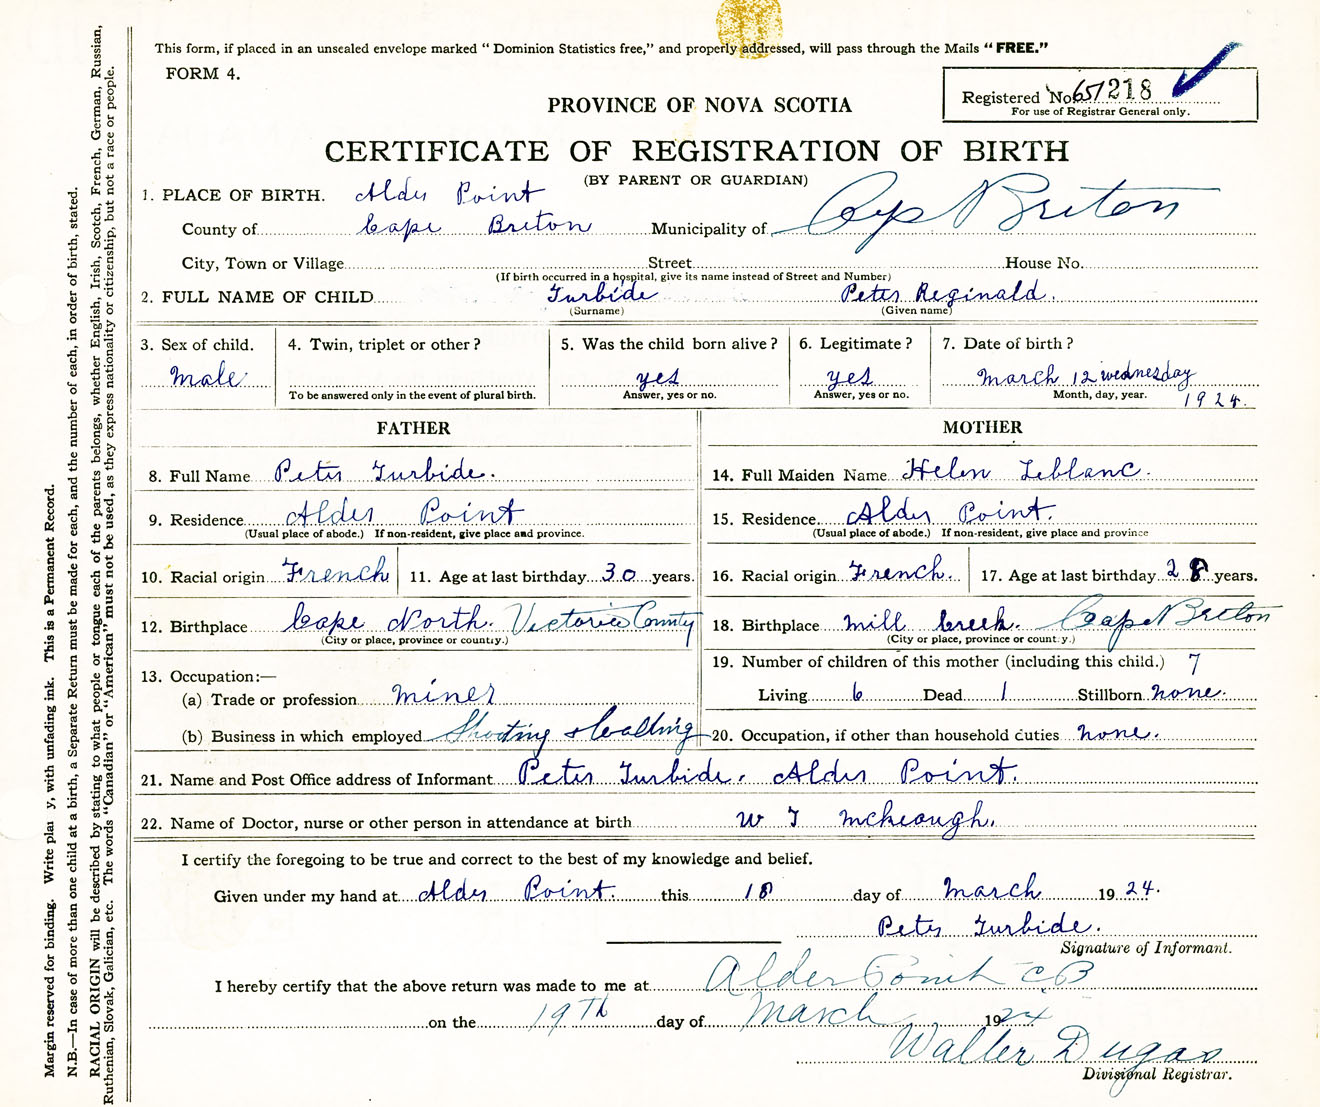 This form, if placed in an unsealed envelope marked "Dominion Statistics free," and properly addressed, will pass through the Mails "FREE."
FORM 4.
Registered No. 651 218
For use of Registrar General only.
PROVINCE OF NOVA SCOTIA
CERTIFICATE OF REGISTRATION OF BIRTH
(BY PARENT OR GUARDIAN)
1. PLACE OF BIRTH. Alder Point
County of Cape Breton Municipality of Cap Breton
City, Town or Village Street House No.
(If birth occurred in a hospital, give its name instead of Street and Number)
2. FULL NAME OF CHILD Turbide Peter Reginald.
(Surname) (Given name)
3. Sex of child. 4. Twin, triplet or other? 5. Was the child born alive? 6. Legitimate? 7. Date of birth?
Male yes yes March 12 wednesday
To be answered only in the event of plural birth. Answer, yes or no. Answer, yes or no. Month, day, year. 1924.
FATHER MOTHER
8. Full Name Peter Turbide. 14. Full Maiden Name Helen Leblanc.
9. Residence Alder Point 15. Residence Alder Point.
(Usual place of abode.) If non-resident, give place and province. (Usual place of abode.) If non-resident, give place and province
10. Racial origin French 11. Age at last birthday 30 years. 16. Racial origin French. 17. Age at last birthday 28 years.
12. Birthplace Cape North. Victoria County 18. Birthplace Mill Creek. Cape Breton
(City or place, province or country.) (City or place, province or country.)
19. Number of children of this mother (including this child.) 7
13. Occupation:—
(a) Trade or profession Miner Living 6 Dead 1 Stillborn none.
(b) Business in which employed Shooting & Loading 20. Occupation, if other than household duties none.
21. Name and Post Office address of Informant Peter Turbide. Alder Point.
22. Name of Doctor, nurse or other person in attendance at birth W J McKeough.
I certify the foregoing to be true and correct to the best of my knowledge and belief.
Given under my hand at Alder Point. this 18 day of March 1924.
Peter Turbide.
Signature of Informant.
I hereby certify that the above return was made to me at Alder Point CB
on the 19Th day of March 1924
Walter Dugas
Divisional Registrar.
Margin reserved for binding. Write plainly, with unfading ink. This is a Permanent Record.
N.B.—In case of more than one child at a birth, a Separate Return must be made for each, and the number of each, in order of birth, stated.
RACIAL ORIGIN will be described by stating to what people or tongue each of the parents belongs, whether English, Irish, Scotch, French, German, Russian,
Ruthenian, Slovak, Galician, etc. The words "Canadian" or "American" must not be used, as they express nationality or citizenship, but not a race or people.